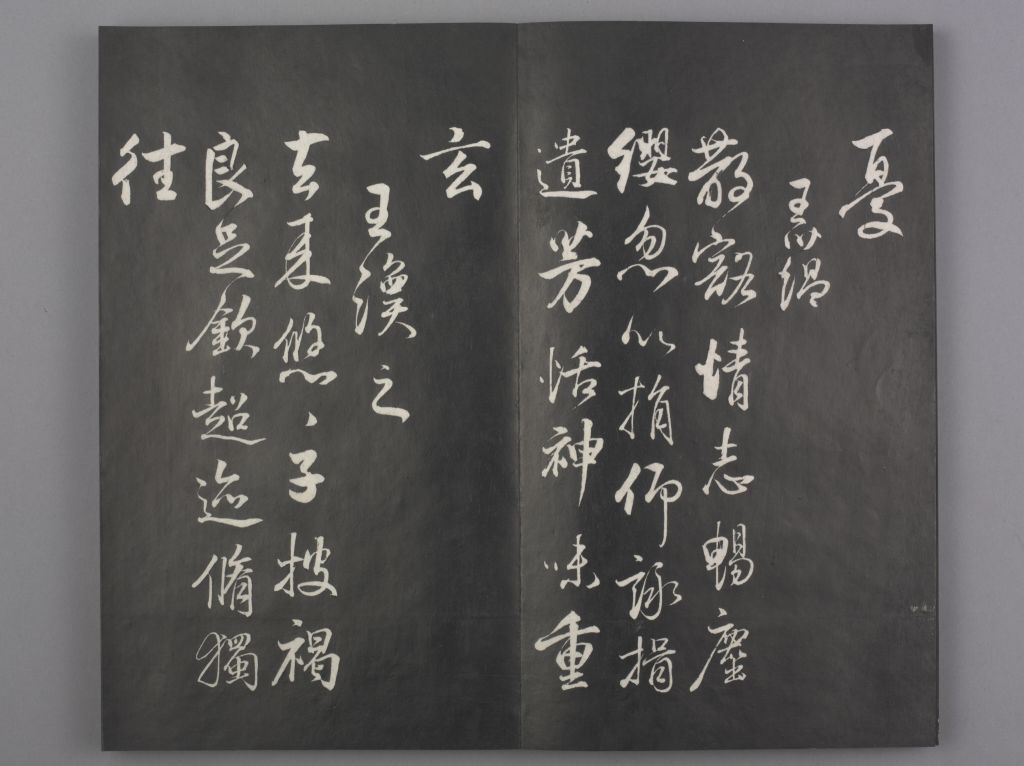 憂
王蘊
散豁情志暢塵
纓忽以捐仰詠挹
遺芳恬神味重
玄
王渙之
去來悠〻子披褐
良足欽超迹脩獨
往